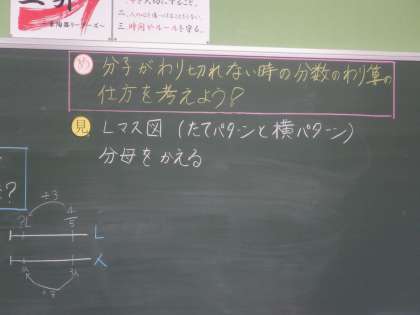 一、時間やルールを守る。
め 分子がわり切れない時の分数のわり算の
仕方を考えよう?
見 Lマス図 (たてパターンと横パターン)
分母をかえる
?
÷3
?L 4/5
L
人
1人 3人
÷3